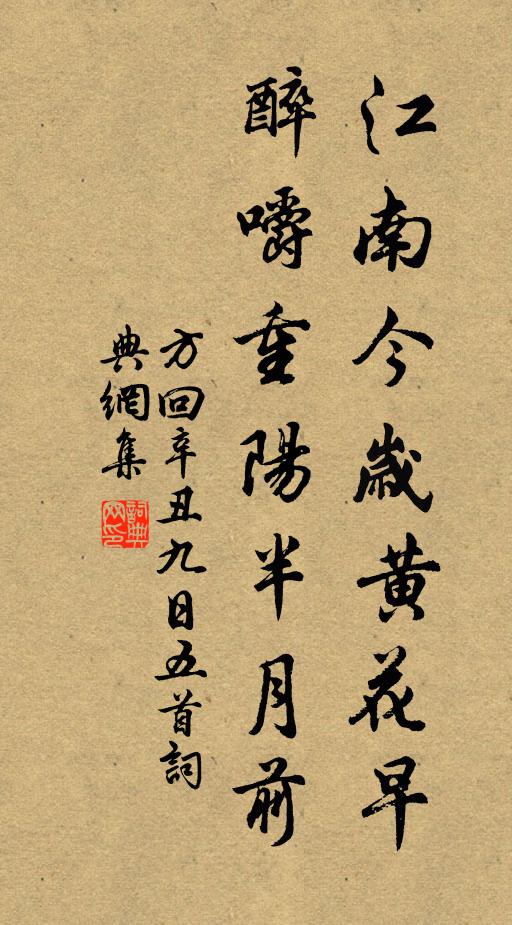 江南今歲黄花早
醉嚼重陽半月前
方回辛丑九日五首詞
典網集
詞典
网印